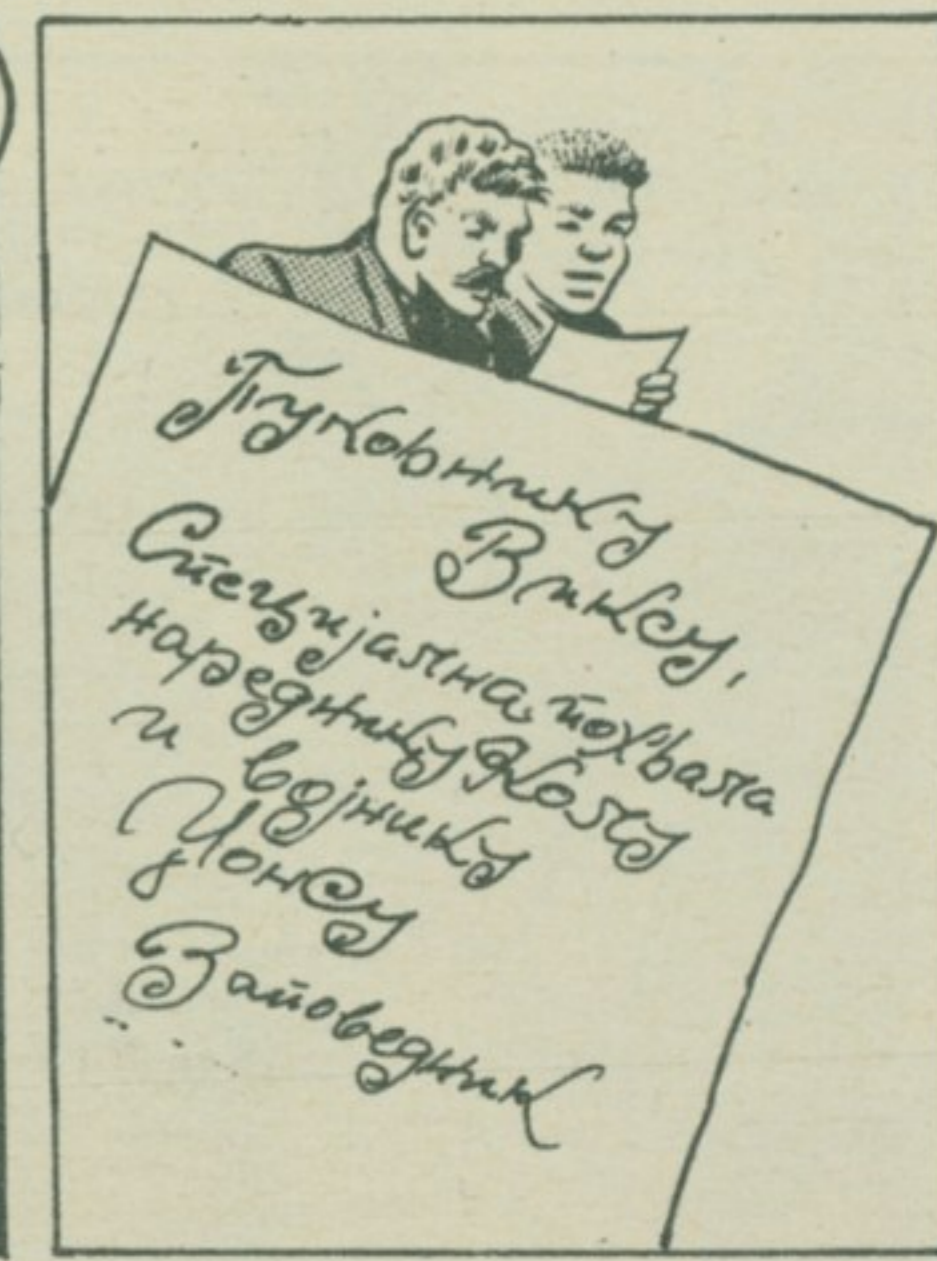 Пуковнику
Виксу,
Специјална похвала
нареднику Колу
и војнику
Џонсу
Заповедник